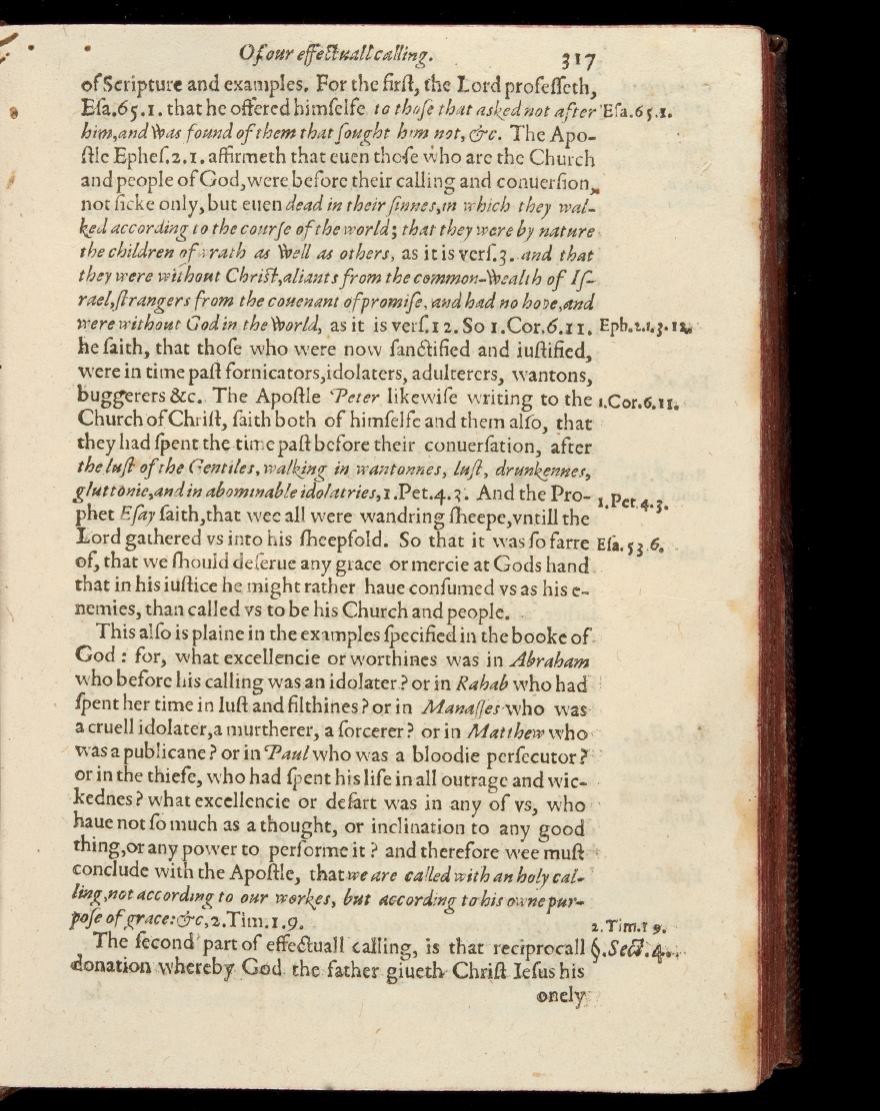 Of our effectuall calling. 317
of Scripture and examples. For the first, the Lord professeth,
Esa.65.1. that he offered himselfe to those that asked not after Esa.65.1.
him,and was found of them that sought him not, &c. The Apo-
stle Ephes.2.1. affirmeth that euen those who are the Church
and people of God,were before their calling and conuersion,
not sicke only, but euen dead in their sinnes,in which they wal-
ked according to the course of the world; that they were by nature
the children of wrath as well as others, as it is vers.3. and that
they were without Christ,aliants from the common-wealth of Is-
rael,strangers from the couenant of promise, and had no hope,and
were without God in the world, as it is vers.12. So 1.Cor.6.11. Eph.2.1.3.12.
he saith, that those who were now sanctified and iustified,
were in time past fornicators,idolaters, adulterers, wantons,
buggerers &c. The Apostle Peter likewise writing to the 1.Cor.6.11.
Church of Christ, saith both of himselfe and them also, that
they had spent the time past before their conuersation, after
the lust of the Gentiles, walking in wantonnes, lust, drunkennes,
gluttonie,and in abominable idolatries,1.Pet.4.3. And the Pro- 1.Pet.4.3.
phet Esay saith,that wee all were wandring sheepe,vntill the
Lord gathered vs into his sheepfold. So that it was so farre Esa.53 6.
of, that we should deserue any grace or mercie at Gods hand
that in his iustice he might rather haue consumed vs as his e-
nemies, than called vs to be his Church and people.
This also is plaine in the examples specified in the booke of
God : for, what excellencie or worthines was in Abraham
who before his calling was an idolater ? or in Rahab who had
spent her time in lust and filthines ? or in Manasses who was
a cruell idolater,a murtherer, a sorcerer ? or in Matthew who
was a publicane ? or in Paul who was a bloodie persecutor ?
or in the thiefe, who had spent his life in all outrage and wic-
kednes ? what excellencie or desart was in any of vs, who
haue not so much as a thought, or inclination to any good
thing,or any power to performe it ? and therefore wee must
conclude with the Apostle, that we are called with an holy cal-
ling,not according to our workes, but according to his owne pur-
pose of grace:&c,2.Tim.1.9. 2.Tim.1 9.
The second part of effectuall calling, is that reciprocall §.Sect.4.
donation whereby God the father giueth Christ Iesus his
onely